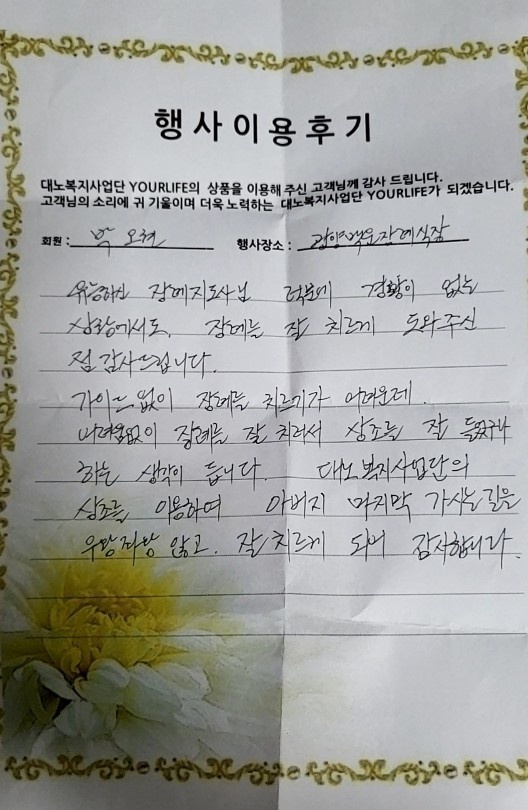 행사이용후기
대노복지사업단 YOURLIFE의 상품을 이용해 주신 고객님께 감사 드립니다.
고객님의 소리에 귀 기울이며 더욱 노력하는 대노복지사업단 YOURLIFE가 되겠습니다.
회원 : 박 오현 행사장소 : 광양백운장례식장
유능하신 장례지도사님 덕분에 경황이 없는
상황에서도, 장례를 잘 치르게 도와주신
점 감사드립니다.
가이드 없이 장례를 치르기가 어려운데,
어려움없이 장례를 잘 치러서 상조를 잘 들었구나
하는 생각이 듭니다. 대노복지사업단의
상조를 이용하여 아버지 마지막 가시는길을
우왕좌왕 않고, 잘 치르게 되어 감사합니다.